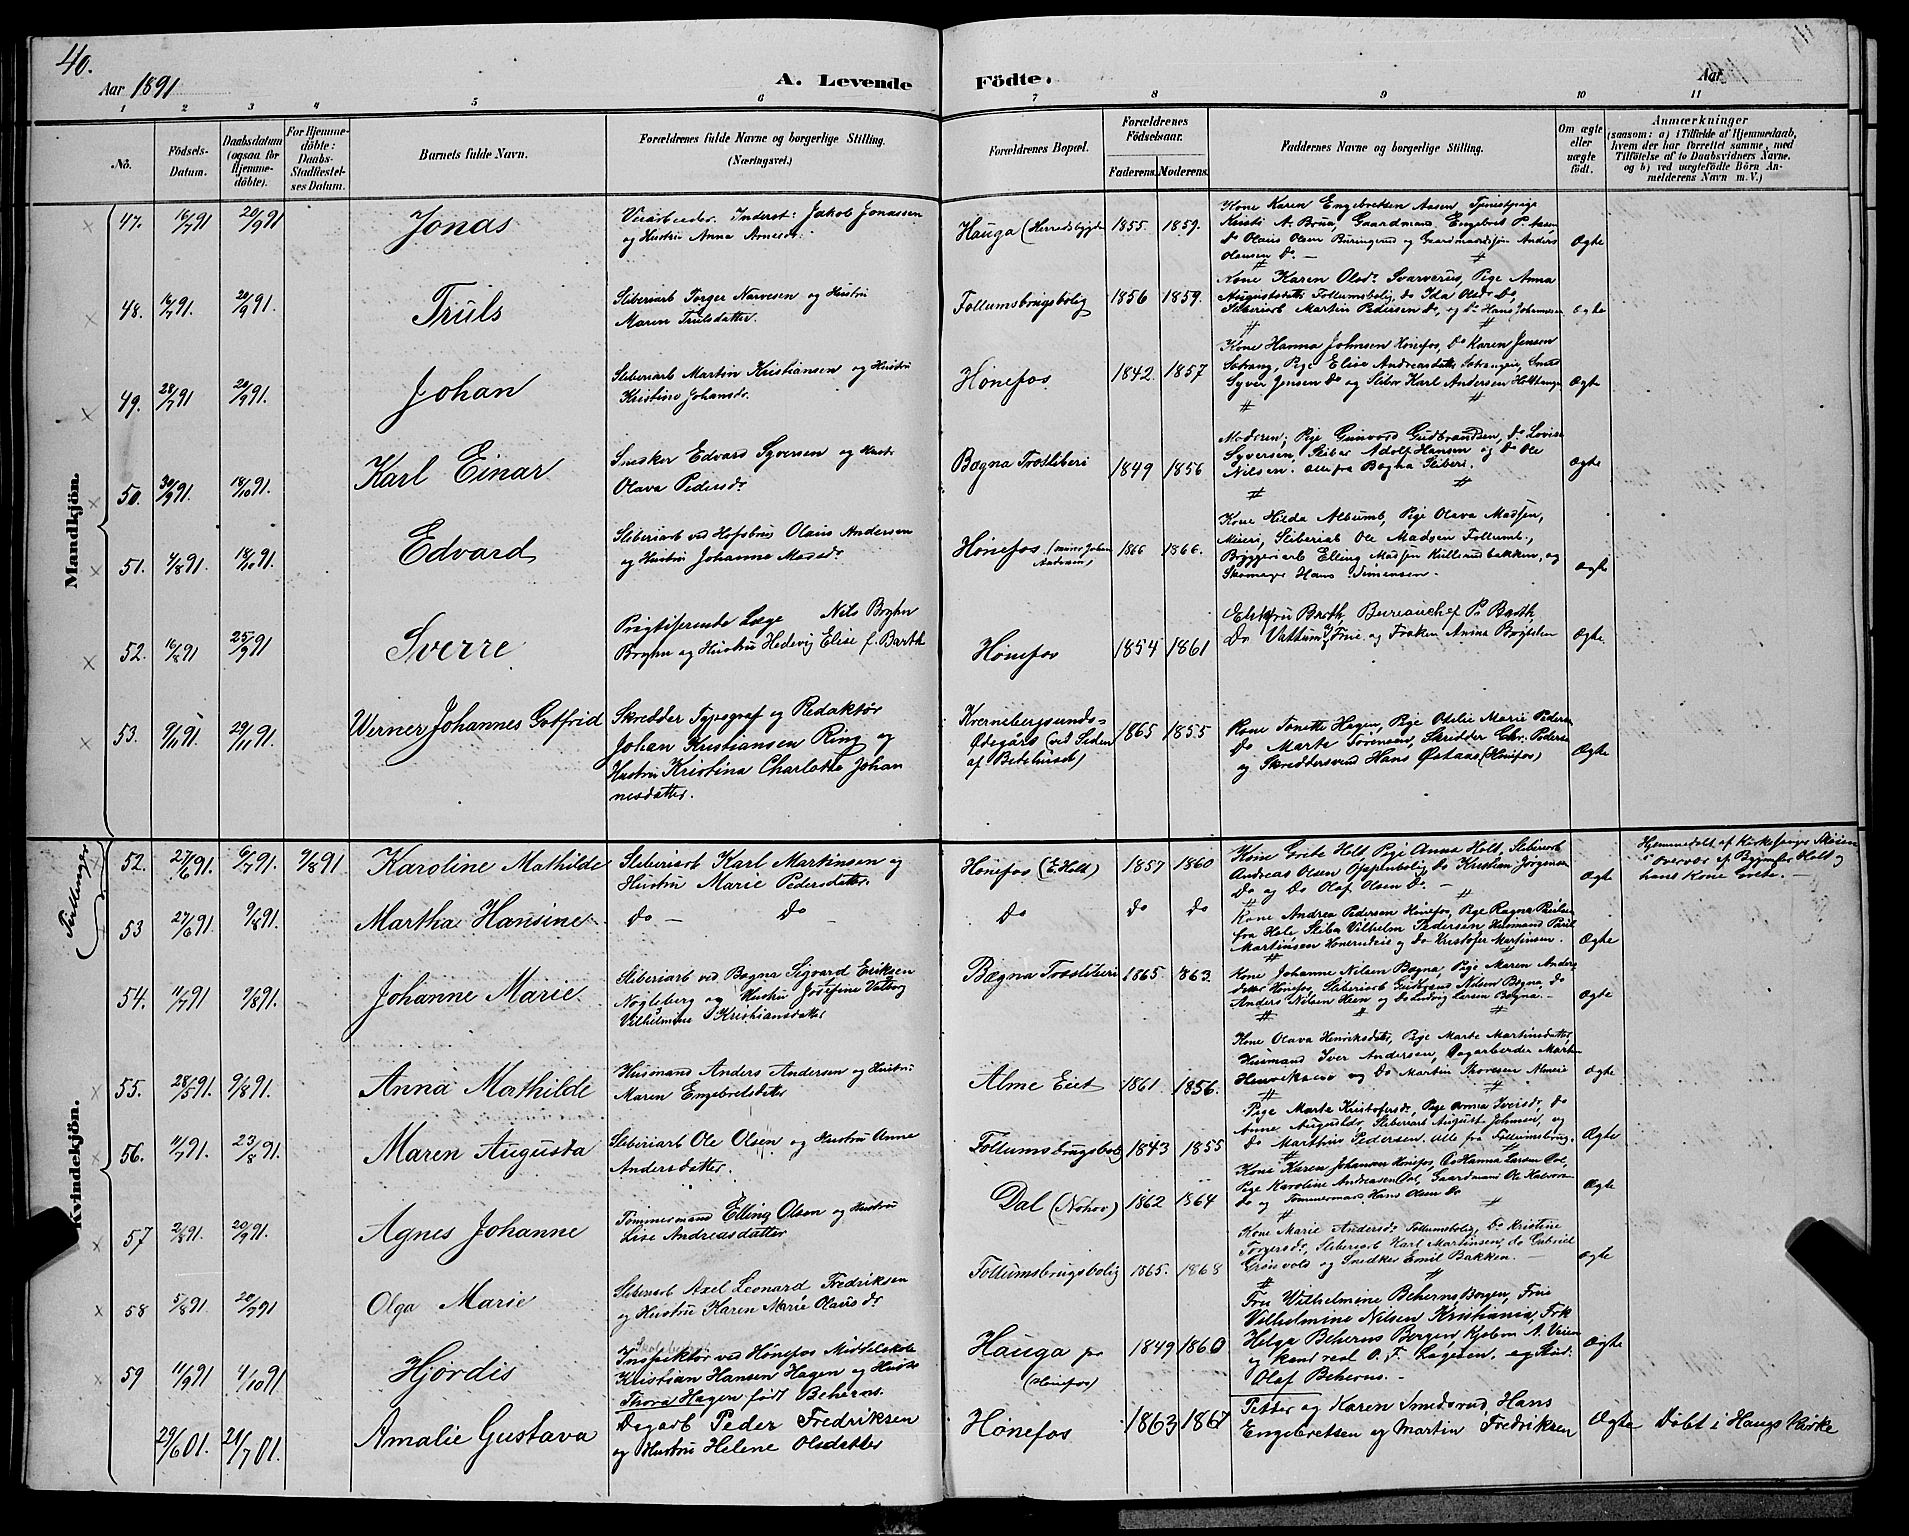 40.
Aar 1891
A. Levende Födte.
Aar
1 2 3 4 5 6 7 8 9 10 11
No.
Födsels-Datum.
Daabsdatum (ogsaa for Hjemme-döbte).
For Hjemme-döbte: Daabs-Stadfæstel-ses Datum.
Barnets fulde Navn.
Forældrenes fulde Navne og borgerlige Stilling. (Næringsvei.)
Forældrenes Bopæl.
Forældrenes Födselsaar.
Faderens. Moderens.
Faddernes Navne og borgerlige Stilling.
Om ægte eller uægte födt.
Anmærkninger
(saasom: a) i Tilfælde af Hjemmedaab,
hvem der har forrettet samme, med
Tilföielse af to Daabsvidners Navne.
og b) ved uægtefödte Börn An-
melderens Navn m. V.)
Mandkjön.
47. 16/7 91 20/9 91 Jonas
Jakob Jonassen
og Hustru Anna Arnesdr.
Hauga (Herredsbygde) 1855. 1859.
Kone Karen Engebretsen Aasen,
Kristi A. Brua, Gaardmand Engebret P. Aasen,
Do Olaus Olsen Buringerud og Gaardmandssøn Anders
Olausen Do. —
Ægte
48. 16/7 91. 20/9 91. Truls
Sliberiarb Torger Narvesen og Hustru
Maren Trulsdatter.
Follumsbrugsbolig 1856 1859.
Kone Karen Olsdr. Svarverus, Pige Anna
Augustsdatter Follumsbolig, Do Ida Olsdr Do,
Sliberiarb Martin Pedersen Do, og Do Hans Johannesen
Ægte
49. 28/7 91 20/9 91. Johan
Sliberiarb Martin Kristiansen og Hustru
Kristine Johansdr.
Hønefos 1842. 1857
Kone Hanna Johnsen Hønefos, Do Karen Jensen
Sørang, Pige Elise Andreasdatter
Syver Jensen Do og Slibar Karl Andersen
Ægte
50. 30/7 91 18/10 91. Karl Einar
Snedker Edvard Syversen og Hust
Olava Pedersdr
Bægna Træsliberi 1849 1856
Moderen, Pige Gunvord Gudbrandsen, Do Lovise
Syversen, Slibar Adolf Hansen og Do Ole
Nilsen. alle fra Bægna Sliberi.
Ægte
51. 4/8 91. 18/10 91. Edvard
Sliberiarb ved Hofsbrug Olaus Andersen
og Hustru Johanne Madsdr
Hønefos 1866 1866.
Kone Hilda Albumb, Pige Olava Madsen,
Meieri, Sliberiab Ole Madsen Follumb.,
Bryggeriarb Elling Madsen Kullerudbakken, og
Skomager Hans Simensen.
Ægte
52. 16/8 91 25/9 91 Sverre
Prigtiserende Læge Nils Bryhn
Bryhn og Hustru Hedevig Elise f. Barth
Hønefos 1854 1861
Barth, Bureauchef P. Barth,
Do Vattum og Frue og Frøken Anina
Ægte
53. 9/11 91. 29/11 91. Werner Johannes Gotfrid
Skredder Typograf og Redaktør
Johan Kristiansen Ring og
Hustru Kristina Charlotte Johan
nesdatter.
Kvernbergsunds-
Ødegård (ved Siden
af Bedehuset) 1865 1855
Kone Tonette Hagen, Pige Otelie Marie Pedersen
Do Marte Sørensen, Skredder Chr. Pedersen
og Skreddersvend Hans Østaas (Hønefos)
Ægte
Kvindekjön.
Tvillinger
52. 27/6 91. 6/7 91. 9/8 91 Karoline Mathilde
Sliberiarb Karl Martinsen og
Hustru Marie Pedersdatter.
Hønefos (E. Holt) 1857 1860
Kone Grete Holt, Pige Anna Holt, Sliberarb
Andreas Olsen Oppenbolig, Do Kristian Jørgensen
Do og Do Olaf Olsen Do. —
Ægte
Hjemmedøbt af Kirkesanger Skøien
i Overvær af Holt og
hans Kone Grete. —
53 27/6 91. 9/8 91. Martha Hansine
Do — Do —
Do Do Do
Kone Andrea Pedersen Hønefos, Pige Ragna Paulsen
fra Hole, Slibar Vilhelm Pedersen Husmand Paul
Martinsen Hønerudeie og Do Kristofer Martinsen.
Ægte
54. 11/7 91 9/8 91. Johanne Marie.
Sliberiarb ved Bægna Sigvard Eriksen
Nøgleberg og Hustru Josefine Valborg
Vilhelmine Kristiansdatter
Bægna Træsliberi 1865. 863.
Kone Johanne Nilsen Bægna, Pige Maren Anders
datter Hønefos, Sliberiarb Gudbrand Nilsen Bægna, Do
Anders Nilsen Heen og Do Ludvig Larsen Bægna. —
Ægte
55. 28/5 91. 9/8 91. Anna Mathilde
Husmand Anders Andersen og Hustru
Maren Engebretsdatter
Alme Eiet 1861. 1856.
Kone Olava Henriksdatter, Pige Marte Martinsdatter,
Husmand Iver Andersen, Dagarbeider Martin
Henriksen og Do Martin Thoresen Almeie
Ægte
56. 11/7 91. 23/8 91. Maren Augusta
Sliberiarb Ole Olsen og Hustru Anne
Andersdatter.
Follumsbrugsbolig 1843 1855
Pige Marte Kristofersdr, Pige Anna Iversdr, Do
Anne Augustsdr, Sliberiarb August Johnsen, og
Do Marthin Pedersen. alle fra Follumsbrug.
Ægte
57 2/8 91. 20/9 91. Agnes Johanne
Tømmermand Elling Olsen og Hustru
Lise Andreasdatter
Dal (Nohov) 1862 1864
Kone Karen Johansen Hønefos, Do Hanna Larsen Dal,
Pige Karoline Andreasen Dal, Gaardmand Ole Halvorsen
Do og Tømmermand Hans Olsen Do
Ægte
58 5/8 91. 20/9 91 Olga Marie
Sliberarb Axel Leonard Fredriksen
og Hustru Karen Marie Olausdr
Follumsbrugsbolig 1865. 1868
Kone Marie Andersdr Follumsbolig, Do Kristine
Torgersdr, Sliberiarb Karl Martinsen, Do Gabriel
Grønvold og Snedker Emil Bakken. —
Ægte
59 11/9 91 4/10 91 Hjørdis
Inspektør ved Hønefos Middelskole
Kristian Hansen Hagen og Hustru
Thora Hagen født Beherns.
Hauga pr
(Hønefos) 1849 1860
Fru Wilhelmine Beherns Borgen, Frue
Vilhelmine Nilsen Kristiania, Frk
Helga Beherns Borgen, Kjøbm A. Veien
og Kand real O. F. Lagesen, og Stud:
Olaf Beherns. —
Ægte
29/6 01. 21/7 01. Amalie Gustava
Dagarb Peder Fredriksen
og Hustru Helene Olsdatter
Hønefos 1863 1867
Petter og Karen Smedsrud Hans
Engebretsen og Martin Fredriksen
Ægte Døbt i Haugs Kirke